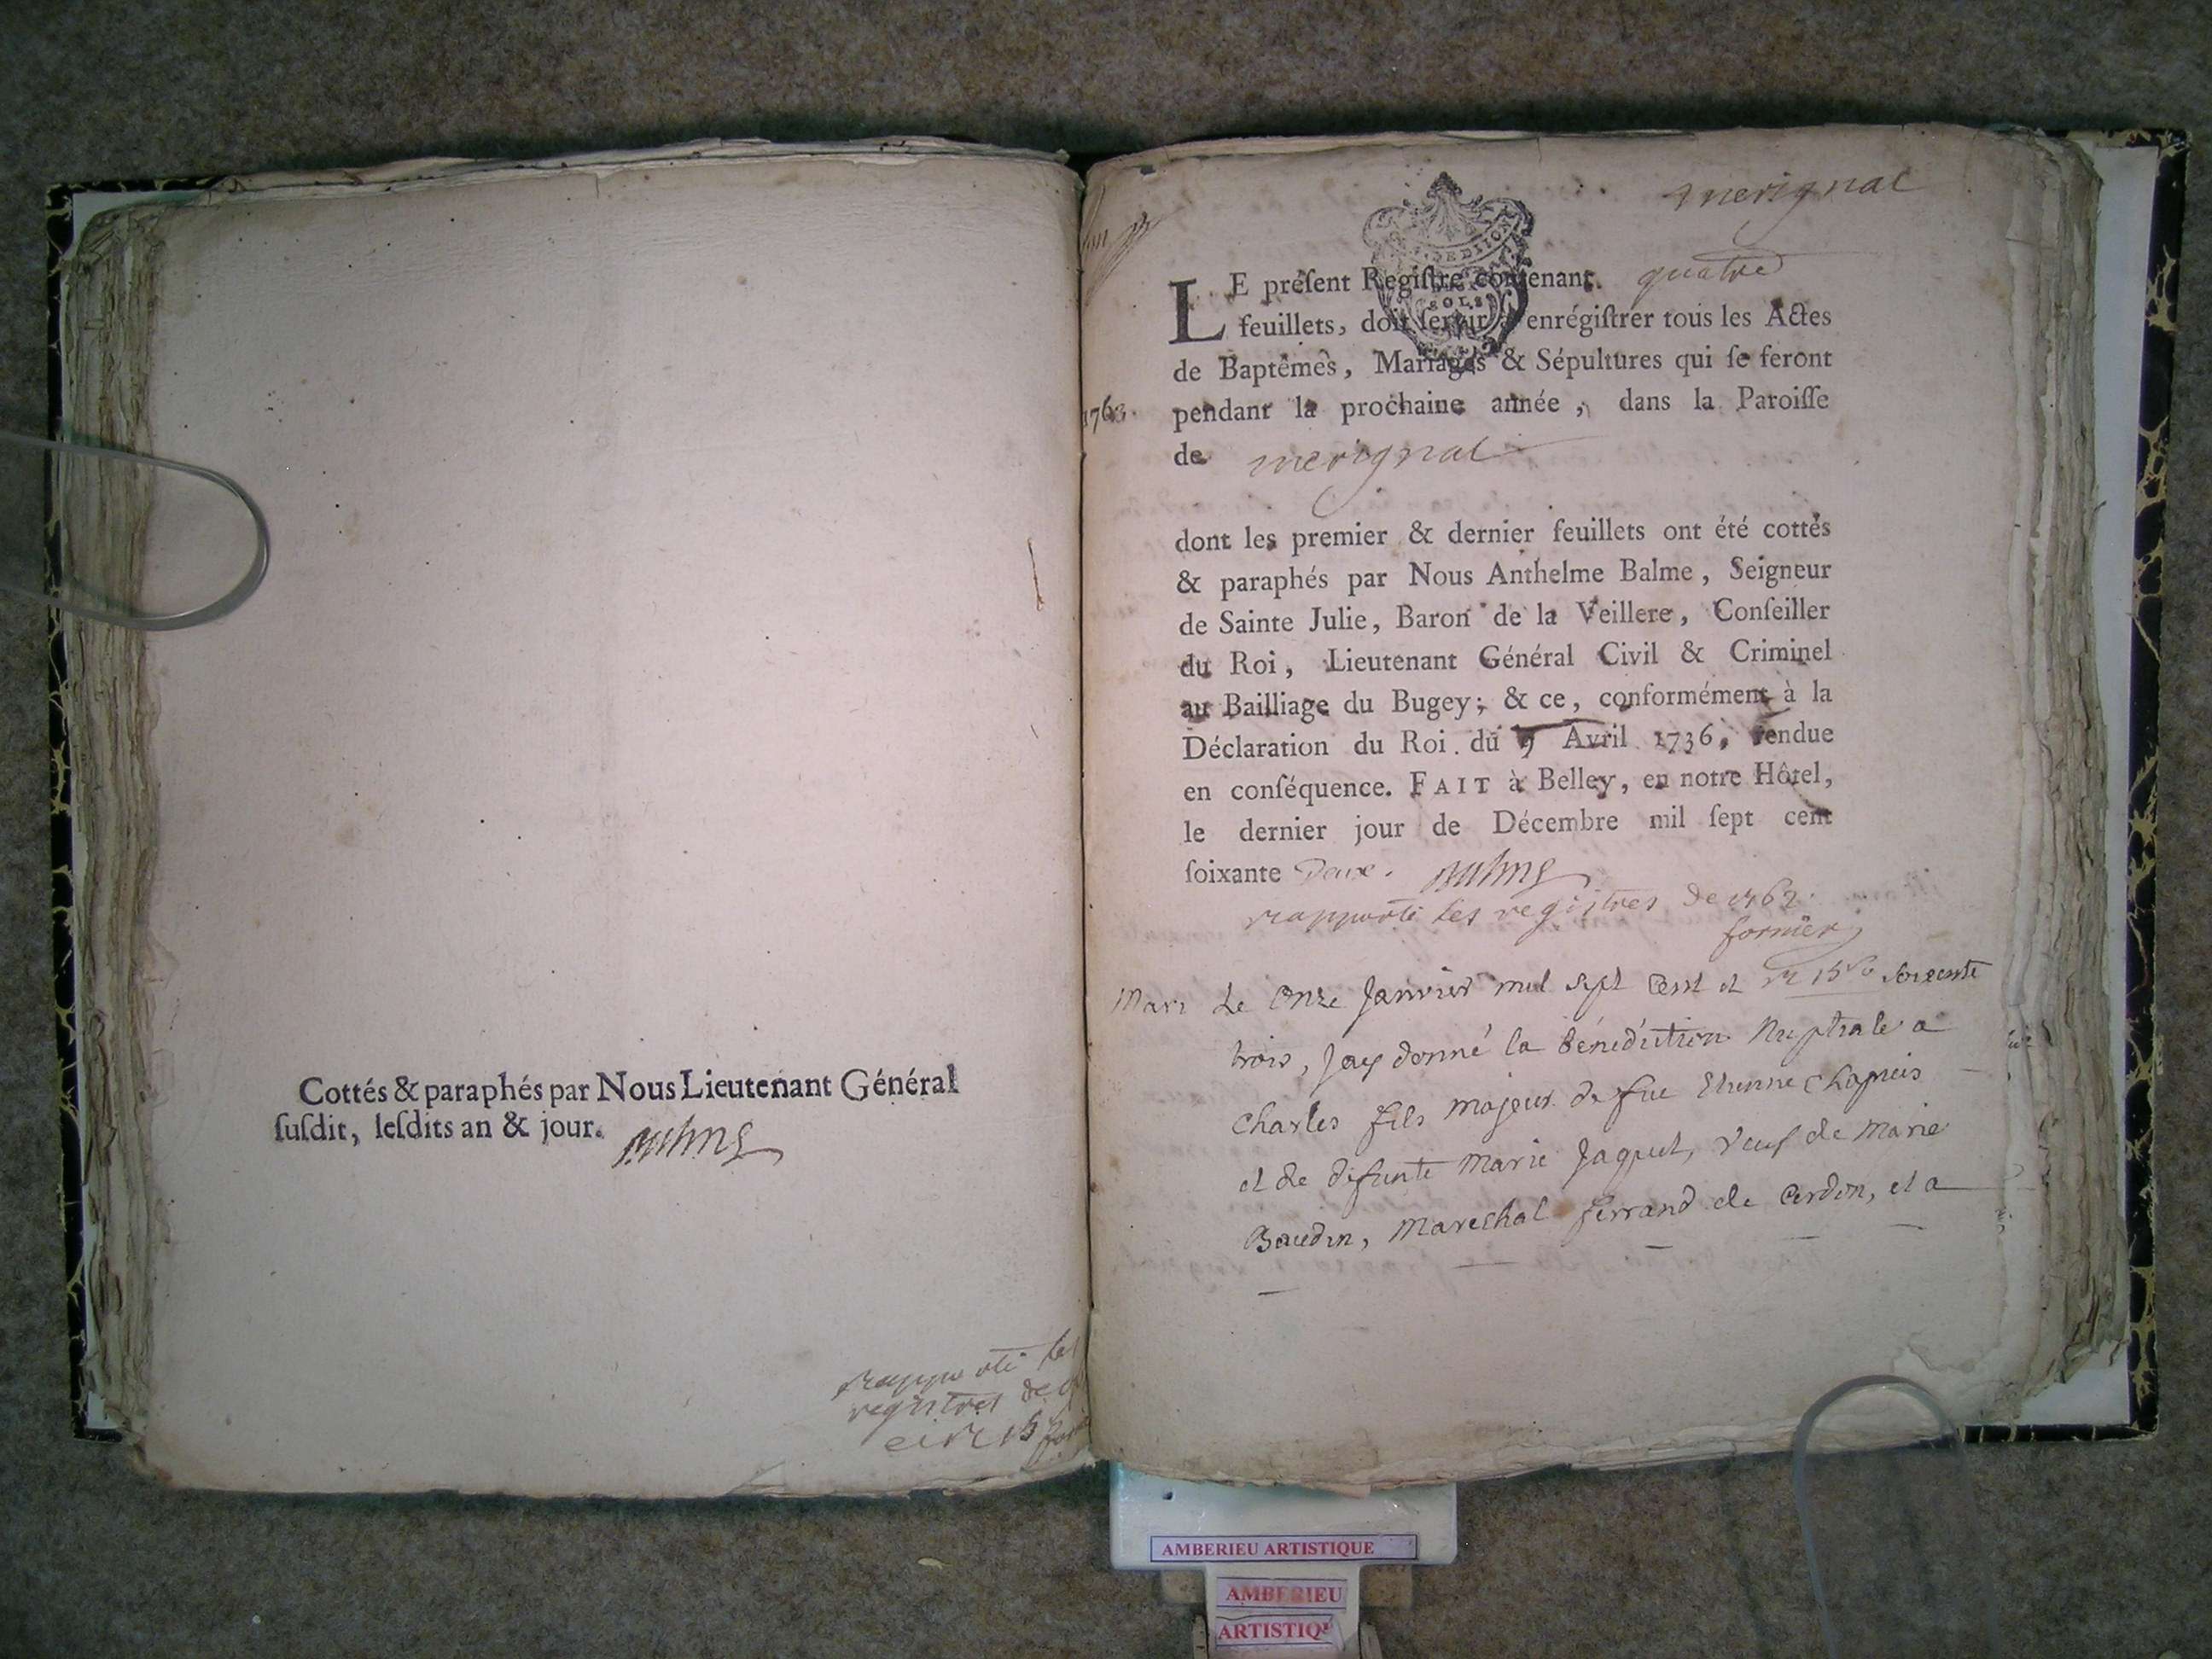 Cottés & paraphés par Nous Lieutenant Général
ſuſdit, leſdits an & jour.
rapporté les
registres de
merignat
LE préſent Regiſtre contenant quatre
feuillets, doit ſervir à enrégiſtrer tous les Actes
de Baptêmes, Mariages & Sépultures qui ſe feront
1763.
pendant la prochaine année, dans la Paroiſſe
de merignat
dont les premier & dernier feuillets ont été cottés
& paraphés par Nous Anthelme Balme, Seigneur
de Sainte Julie, Baron de la Veillere, Conſeiller
du Roi, Lieutenant Général Civil & Criminel
au Bailliage du Bugey; & ce, conformément à la
Déclaration du Roi du 9 Avril 1736, rendue
en conſéquence. FAIT à Belley, en notre Hôtel,
le dernier jour de Décembre mil ſept cent
ſoixante Deux. Balme
rapporté les registres de 1762.
fornier
Mari Le Onze Janvier mil sept Cent et soixente
trois, Jay donné la bénédiction Nuptiale a
Charles fils majeur de fue Etienne Chapuis
et de defunte Marie Jaquet, Veuf de Marie
Baudin, Marechal ferrand de Cerdon, et a
AMBERIEU ARTISTIQUE
AMBERIEU
ARTISTIQ